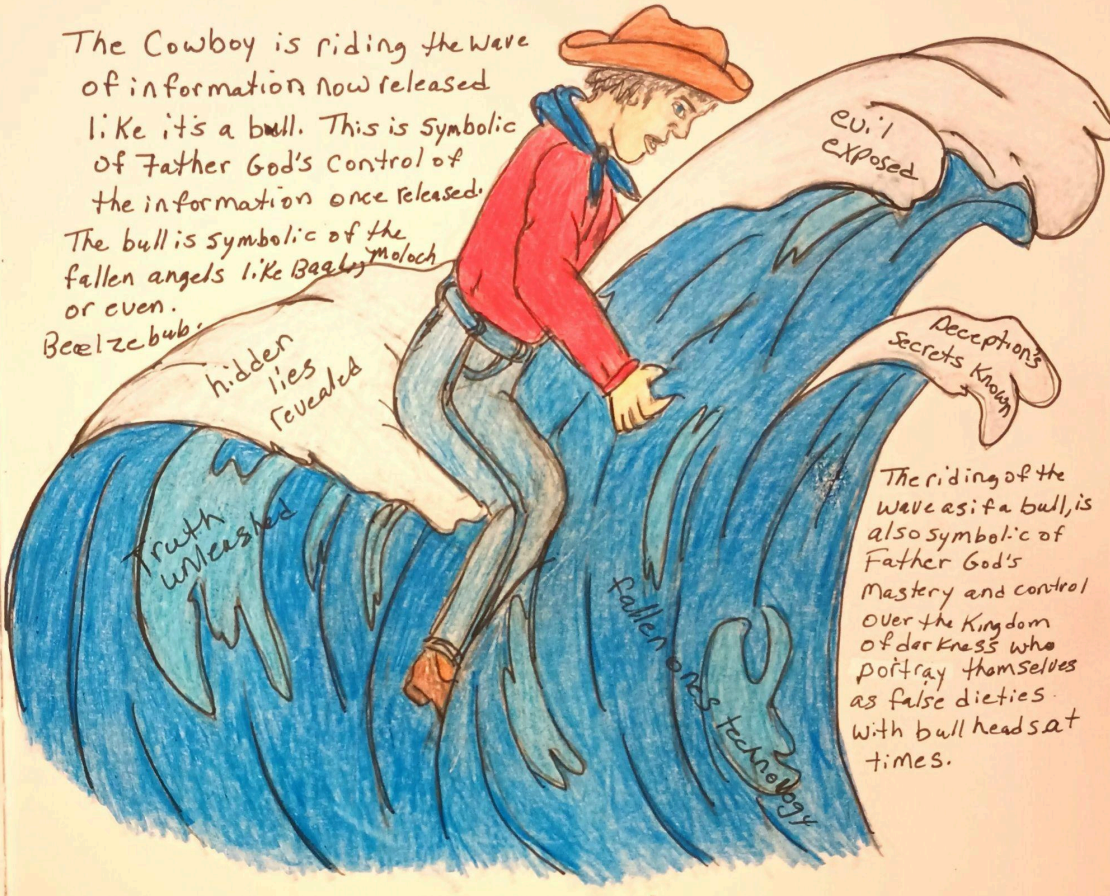 The Cowboy is riding the wave
of information now released
like it's a bull. This is symbolic
of Father God's control of
the information once released.
The bull is symbolic of the
fallen angels like Baal, Moloch
or even.
Beelzebub.
hidden
lies
revealed
Truth
unleashed
evil
exposed
Deception's
Secrets Known
fallen ones technology
The riding of the
wave as if a bull, is
also symbolic of
Father God's
Mastery and control
over the Kingdom
of darkness who
portray themselves
as false dieties
with bull heads at
times.